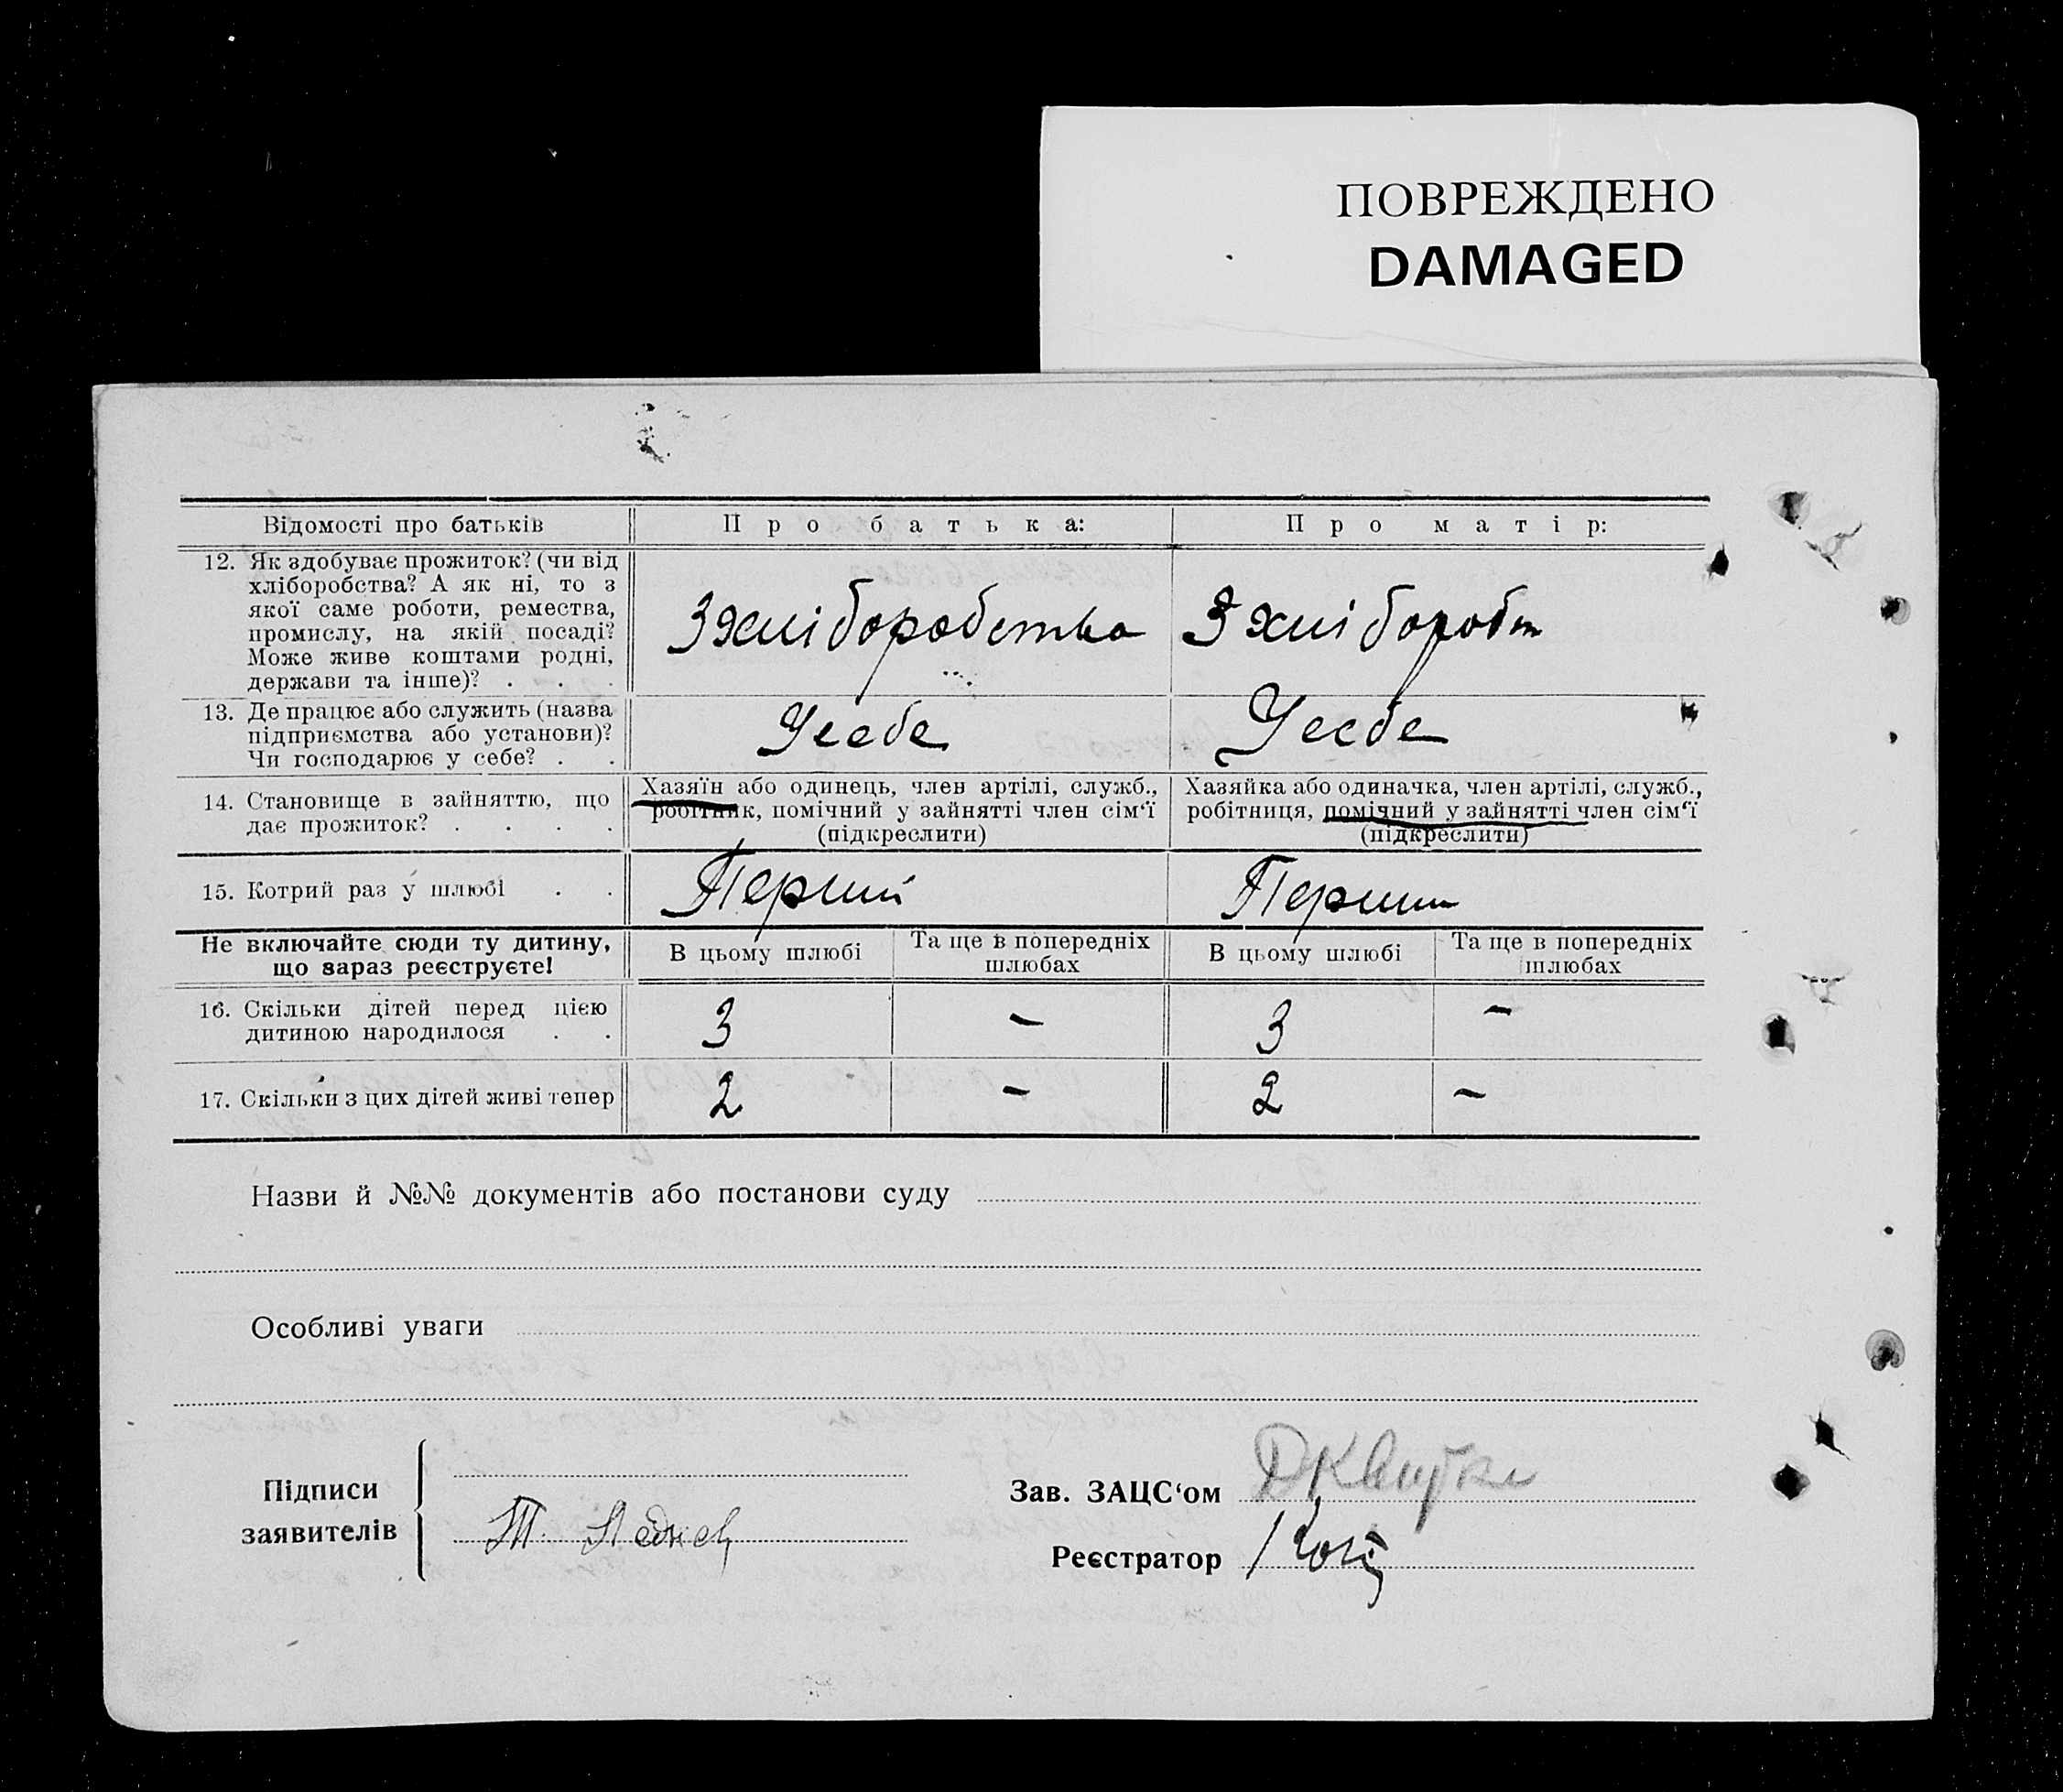 ПОВРЕЖДЕНО
DAMAGED
Відомості про батьків
Про батька:
Про матір:
12. Як здобуває прожиток? (чи від
хліборобства? А як ні, то з
якої саме роботи, ремества,
промислу, на якій посаді?
Може живе коштами родні,
держави та інше)? . . .
З хліборобства
З хлібороб
13. Де працює або служить (назва
підприємства або установи)?
Чи господарює у себе? . .
У себе
У себе
14. Становище в зайняттю, що
дає прожиток? . . . .
Хазяїн або одинець, член артілі, служб.,
робітник, помічний у зайнятті член сім‘ї
(підкреслити)
Хазяйка або одиначка, член артілі, служб.,
робітниця, помічний у зайнятті член сім‘ї
(підкреслити)
15. Котрий раз у шлюбі . .
Перший
Перший
Не включайте сюди ту дитину,
що зараз реєструєте!
В цьому шлюбі
Та ще в попередніх
шлюбах
В цьому шлюбі
Та ще в попередніх
шлюбах
16. Скільки дітей перед цією
дитиною народилося . .
3
–
3
–
17. Скільки з цих дітей живі тепер
2
–
2
–
Назви й №№ документів або постанови суду
Особливі уваги
Підписи
заявителів
Т.
Зав. ЗАЦС‘ом
Реєстратор